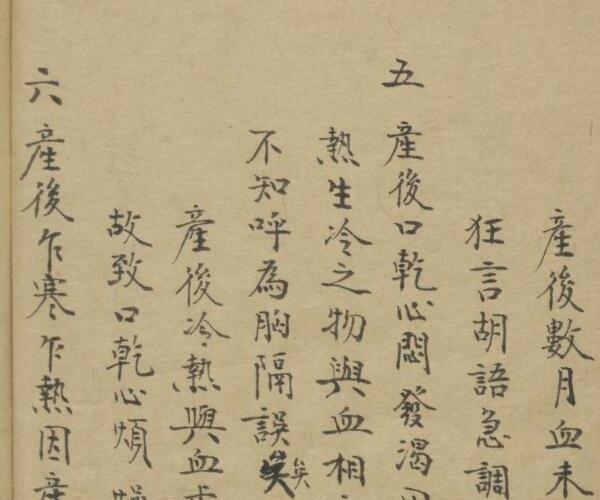 產後數月血未
狂言胡語急調
五 產後口乾心悶發渴
熱生冷之物與血相
不知呼為胸隔誤矣矣
產後冷熱與血
故致口乾心煩
六 產後乍寒乍熱因產